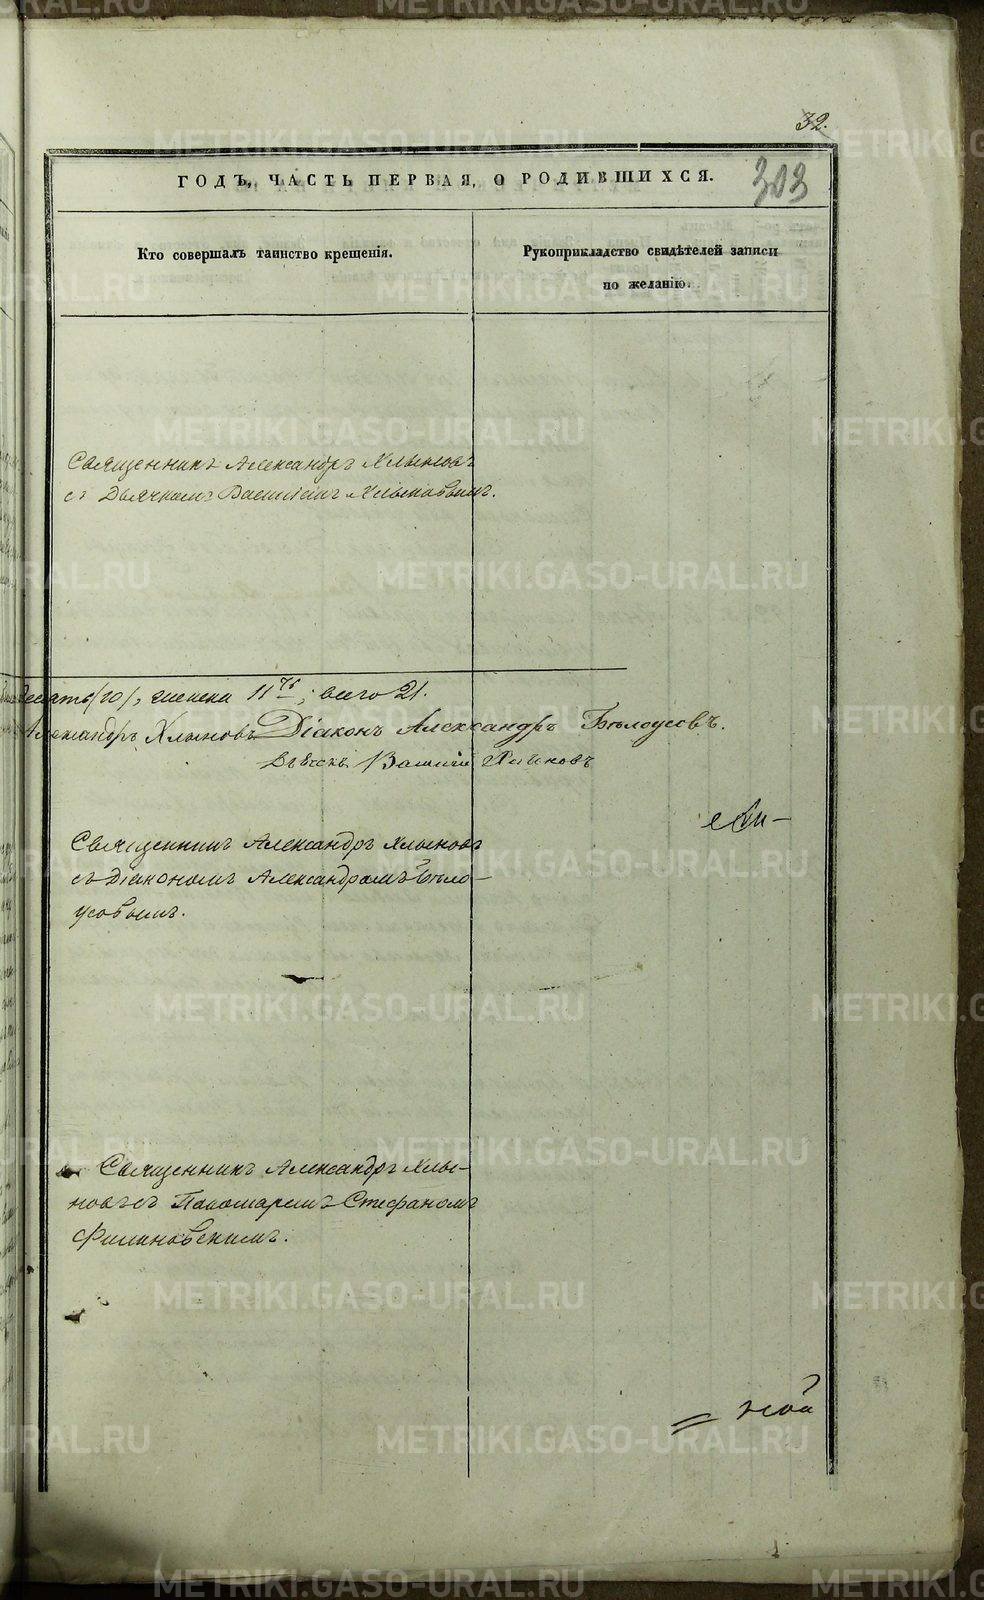 32.
ГОДЪ, ЧАСТЬ ПЕРВАЯ, О РОДИВШИХСЯ.
303
Кто совершалъ таинство крещенія.
Рукоприкладство свидѣтелей записи
по желанію.
Священникъ Александръ Хлыновъ
съ Дьячкомъ Василіемъ Хлыновымъ.
десять (10), женска 11ть; всего 21.
Александръ Хлыновъ Діаконъ Александръ Бѣлоусовъ.
Василій
Священникъ Александръ Хлыновъ
съ Діакономъ Александромъ Бѣло-
усовымъ.
Священникъ Александръ Хлы-
новъ съ Пономаремъ Стефаномъ
Филиновскимъ.
METRIKI.GASO-URAL.RU